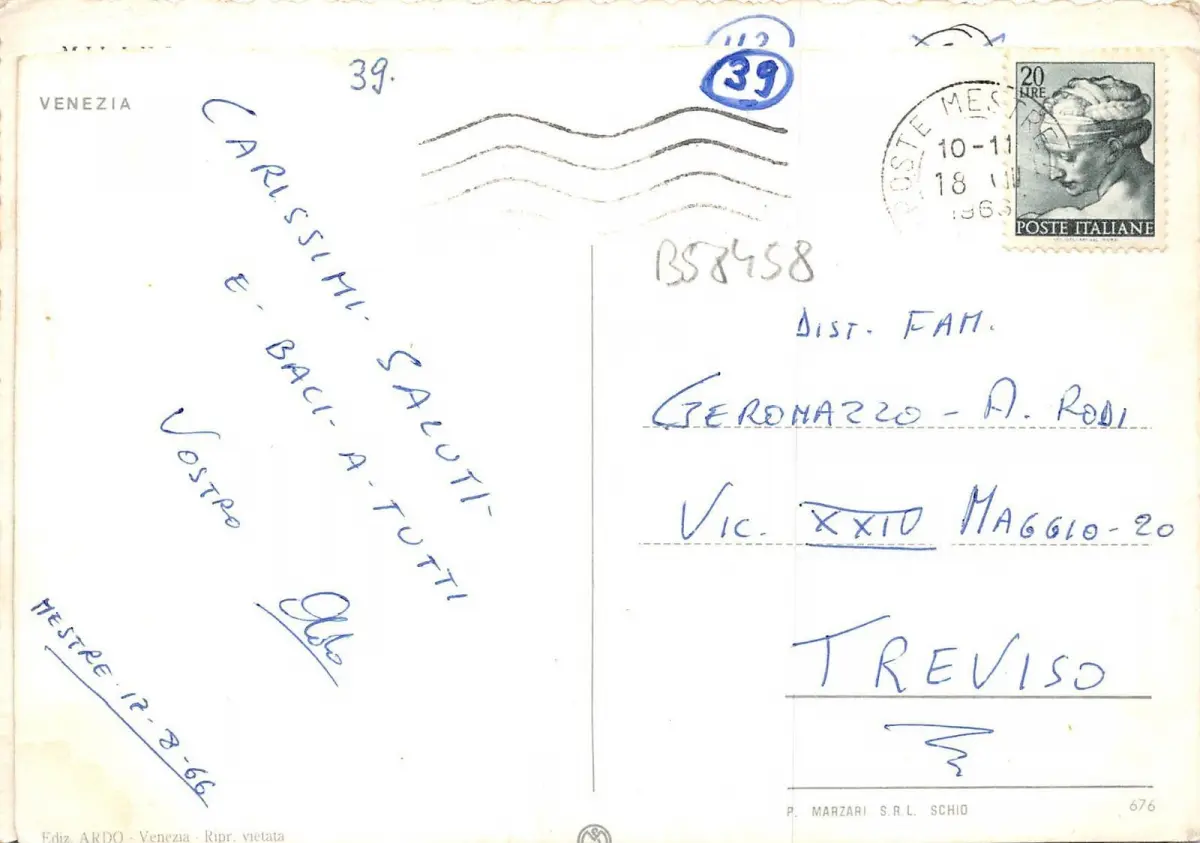 39.
39
VENEZIA
CARISSIMI SALUTI
E BACI A TUTTI
VOSTRO
Aldo
MESTRE 17-8-66
Ediz. ARDO - Venezia - Ripr. vietata
POSTE MESTRE
10-11
18
20
LIRE
POSTE ITALIANE
B58458
DIST. FAM.
GERONAZZO - A. RODI
VIC. XXIV MAGGIO-20
TREVISO
P. MARZARI S.R.L. SCHIO
676